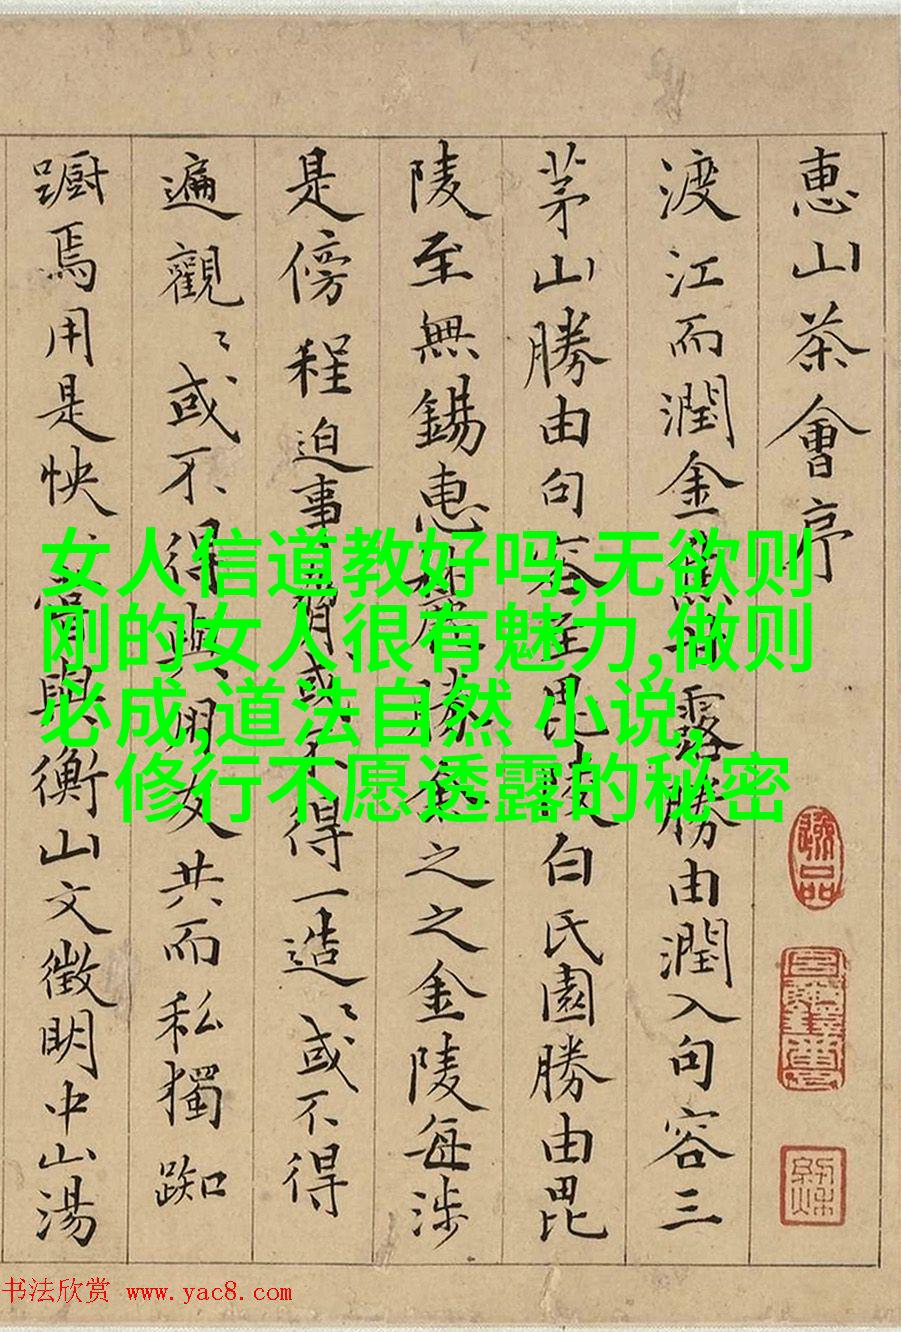 惠山茶會序
渡江而潤金焦甘露勝由潤入句容三
茅山勝由句容至毘陵白氏園勝由毘
陵至無錫惠麓勝余之之金陵每涉
是傍程迫事或不得一造〻或不得
遍觀〻或不得與朋友共而私獨踟
躕焉用是怏嘗與衡山文徵明中山湯
女人信道教好吗,无欲则
刚的女人很有魅力,做则
必成,道法自然 小说,
修行不愿透露的秘密
书法欣赏 www.yac8.com